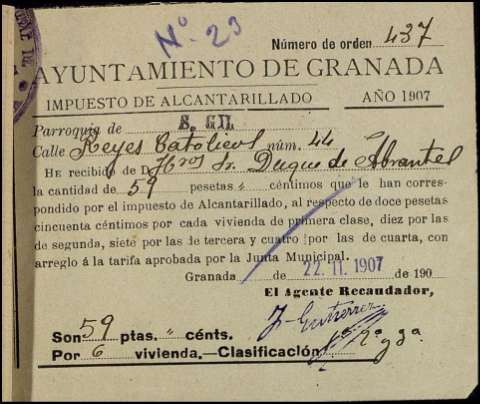 Nº 23
Número de orden 437
AYUNTAMIENTO DE GRANADA
IMPUESTO DE ALCANTARILLADO AÑO 1907
Parroquia de S. GIL
Calle Reyes Catolicos núm. 44
HE recibido de D. Hros Sr. Duque de Abrantes
la cantidad de 59 pesetas " céntimos que le han corres-
pondido por el impuesto de Alcantarillado, al respecto de doce pesetas
cincuenta céntimos por cada vivienda de primera clase, diez por las
de segunda, siete por las de tercera y cuatro por las de cuarta, con
arreglo á la tarifa aprobada por la Junta Municipal.
Granada de 22. 11. 1907 de 190
El Agente Recaudador,
J. Gutierrez
Son 59 ptas. " cénts.
Por 6 vivienda.—Clasificación 1ª 2ª y 3ª